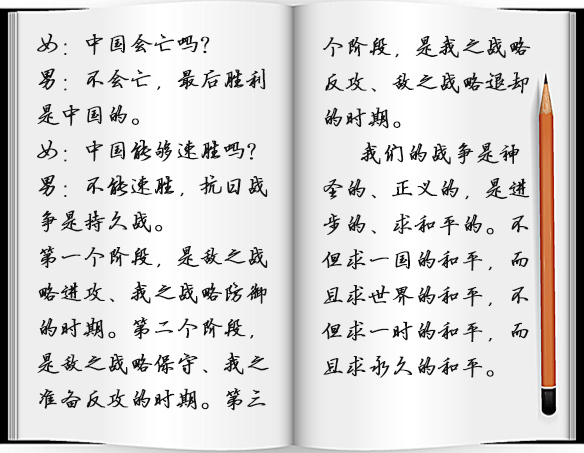 女：中国会亡吗？
男：不会亡，最后胜利
是中国的。
女：中国能够速胜吗？
男：不能速胜，抗日战
争是持久战。
第一个阶段，是敌之战
略进攻、我之战略防御
的时期。第二个阶段，
是敌之战略保守、我之
准备反攻的时期。第三
个阶段，是我之战略
反攻、敌之战略退却
的时期。
我们的战争是神
圣的、正义的，是进
步的、求和平的。不
但求一国的和平，而
且求世界的和平，不
但求一时的和平，而
且求永久的和平。